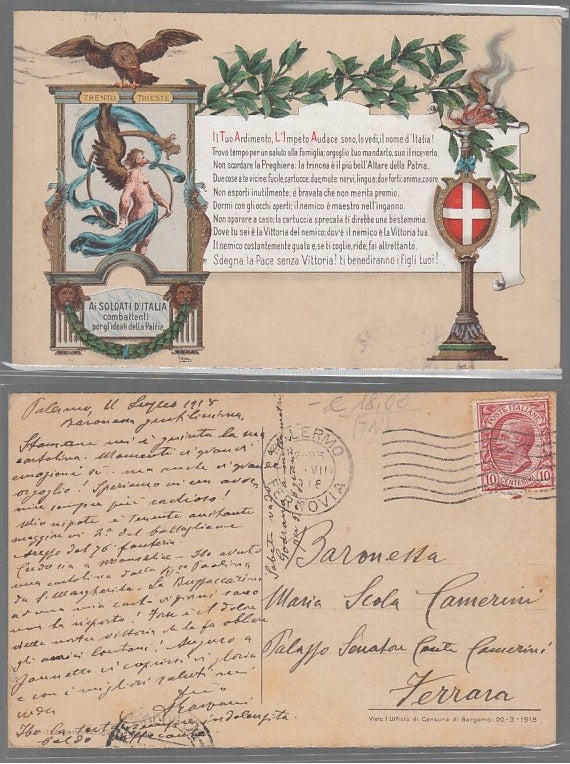 TRENTO TRIESTE
Il Tuo Ardimento, L'Impeto Audace sono, lo vedi, il nome d'Italia!
Trova tempo per un saluto alla famiglia; orgoglio tuo mandarlo, suo il riceverlo.
Non scordare la Preghiera: la trincea è il più bell'Altare della Patria.
Due cose a te vicine; facile, cartucce; due, mute: nervi, lingua; due forti: anima, cuore.
Non esporti inutilmente; è bravata che non merita premio.
Dormi con gli occhi aperti; il nemico è maestro nell'inganno.
Non sparare a caso; la cartuccia sprecata ti direbbe una bestemmia.
Dove tu sei è la Vittoria del nemico; dov'è il nemico è la Vittoria tua.
Il nemico costantemente guata e, se ti coglie, ride; fai altrettanto.
Sdegna la Pace senza Vittoria! ti benediranno i figli tuoi!
Ai SOLDATI D'ITALIA
combattenti
per gli ideali della Patria
Palermo, 11 Luglio 1918
Baronessa gentilissima,
Stamane mi è giunta la sua
cartolina. Momenti di grandi
emozioni sì, ma anche di grande
orgoglio! Speriamo in un avve-
nire sempre più radioso!
Mio nipote è tenente aiutante
maggiore 2º del battaglione
del 76º fanteria.
Ho avuto
una cartolina dalla
da S. Margherita. La
ad una mia carta di giorni sono
non ha risposto! Forse è il
della nostra vittoria che fa obliare
gli amici lontani! Auguro a
Giannetto di coprirsi di gloria
e con i migliori saluti mi
creda
Suo
€ 18,00
LERMO
VII
18
FERROVIA
POSTE ITALIANE
10 CENTESIMI 10
Baronessa
Maria Scola Camerini
Palazzo Senatore Conte Camerini
Ferrara
Visto l'Ufficio di Censura di Bergamo - 20-3-1918
caldo